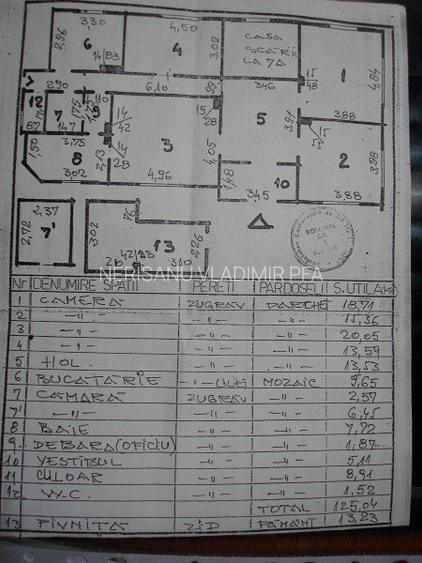 3.30
4,50
2,96
6
4
3,02
CASA
SCĂRII
LA 7A
1
4,84
14/83
15
48
2.90
6,10
346
12
7
1,75
9
14
42
15
28
3
5
3,94
3,88
87
147
1,50
3,75
8
3,13
14
28
4,05
2
3,98
302
4,96
1,48
10
3,45
3,88
2,37
2,72
7'
3,02
13
2,26
NEDISANU VLADIMIR PFA
Nr DENUMIRE SPAȚII PEREȚI PARDOSELI S.UTILĂ
1 CAMERĂ ZUGRAV PARCHET 18,71
2 -"- -"- -"- 15,36
3 -"- -"- -"- 20,05
4 -"- -"- -"- 13,59
5 HOL -"- -"- 13,53
6 BUCĂTĂRIE -"-ULEI MOZAIC 9,65
7 CĂMARĂ ZUGRAV -"- 2,57
7' -"- -"- -"- 6,45
8 BAIE -"- -"- 7,72
9 DEBARA(OFICIU) -"- -"- 1,87
10 VESTIBUL -"- -"- 5,11
11 CULOAR -"- -"- 8,91
12 W.C. -"- -"- 1,52
TOTAL 125,04
13 PIVNIȚĂ ZID PĂMÂNT 13,23